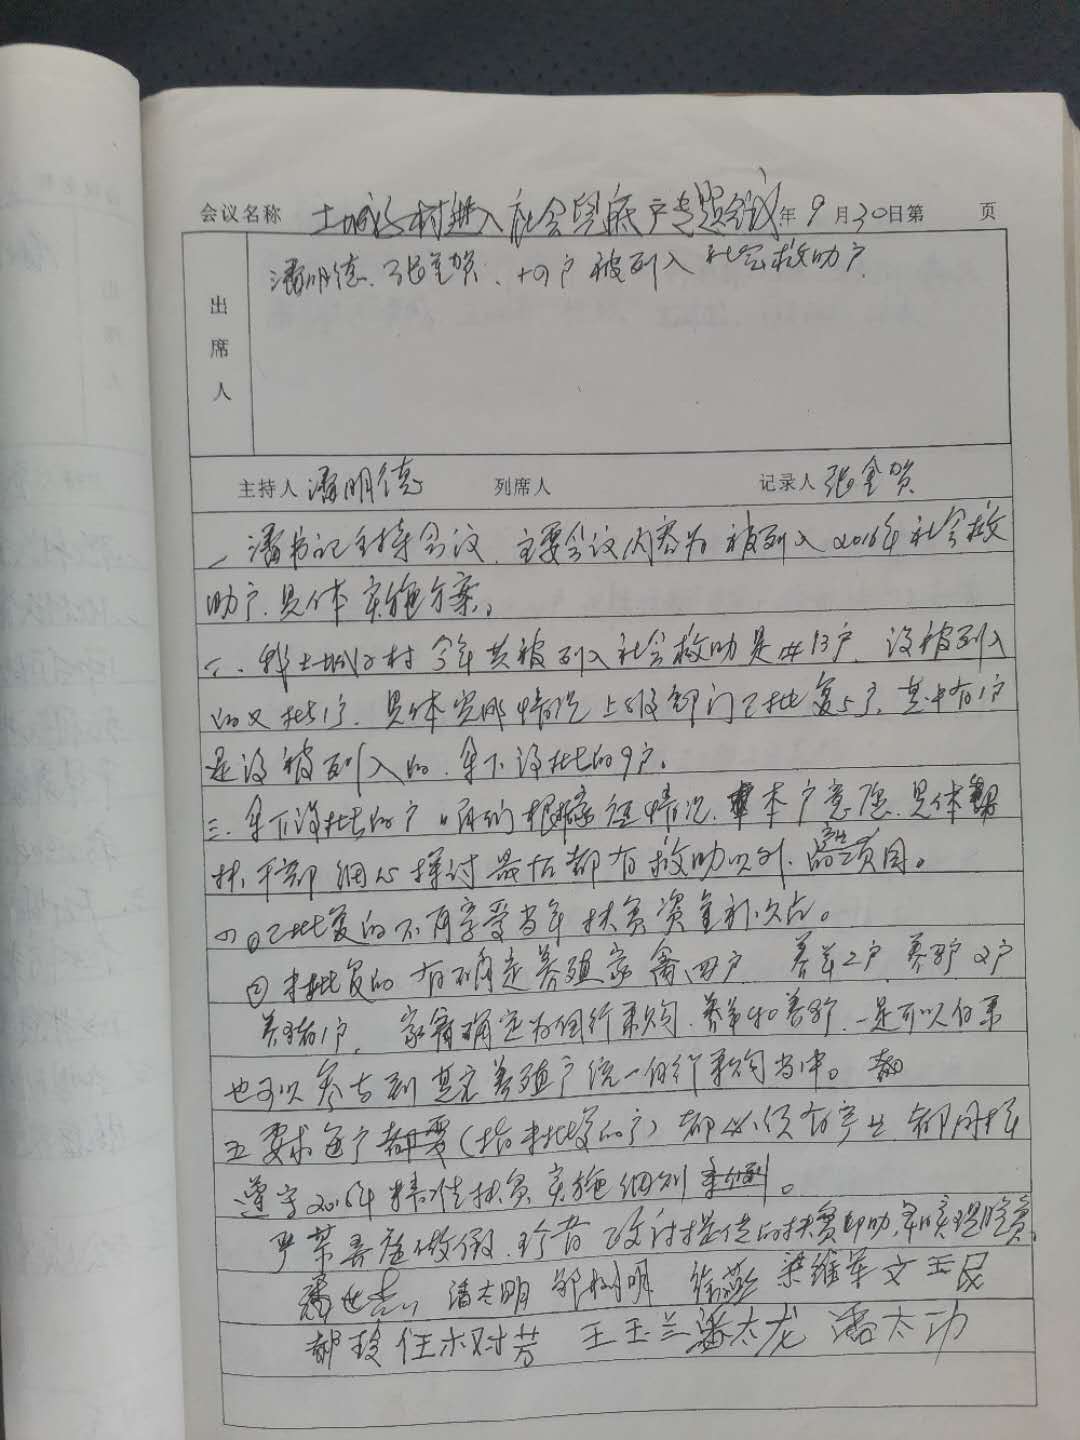 会议名称 土城子村进入社会兜底户专题会议 年 9 月 30 日第 页
出席人 潘明德、张金贺、十四户被列入社会救助户
主持人 潘明德 列席人 记录人 张金贺
一、潘书记主持会议、主要会议内容为被列入2016年社会救
助户、具体实施方案。
二、我土城子村今年共被列入社会救助是13户、没被列入
的又批1户、具体实际情况上级部门已批复5户、其中有1户
是没被列入的、余下没批的9户。
三、余下没批的户 根据 情况、本户意愿、具体帮
扶干部细心探讨最后都有救助以外、产业项目。
四、①已批复的不再享受当年扶贫资金和次点。
②未批复的有确定养殖家禽四户 养羊2户 养驴2户
养猪1户、家禽确定为自行采购、养羊和养驴、一是可以自采
也可以参与到其它养殖户统一自行采购当中。
五、要求每户都要(指未批复的户)都必须有产业、都同样
遵守2016年精准扶贫实施细则。
严禁弄虚做假、珍惜 提供的扶贫帮助、早实现脱贫。
潘世吉 潘太明 邹树明 徐燕 梁维军 文玉民
郝玲 任木对芳 王玉兰 潘太龙 潘太功